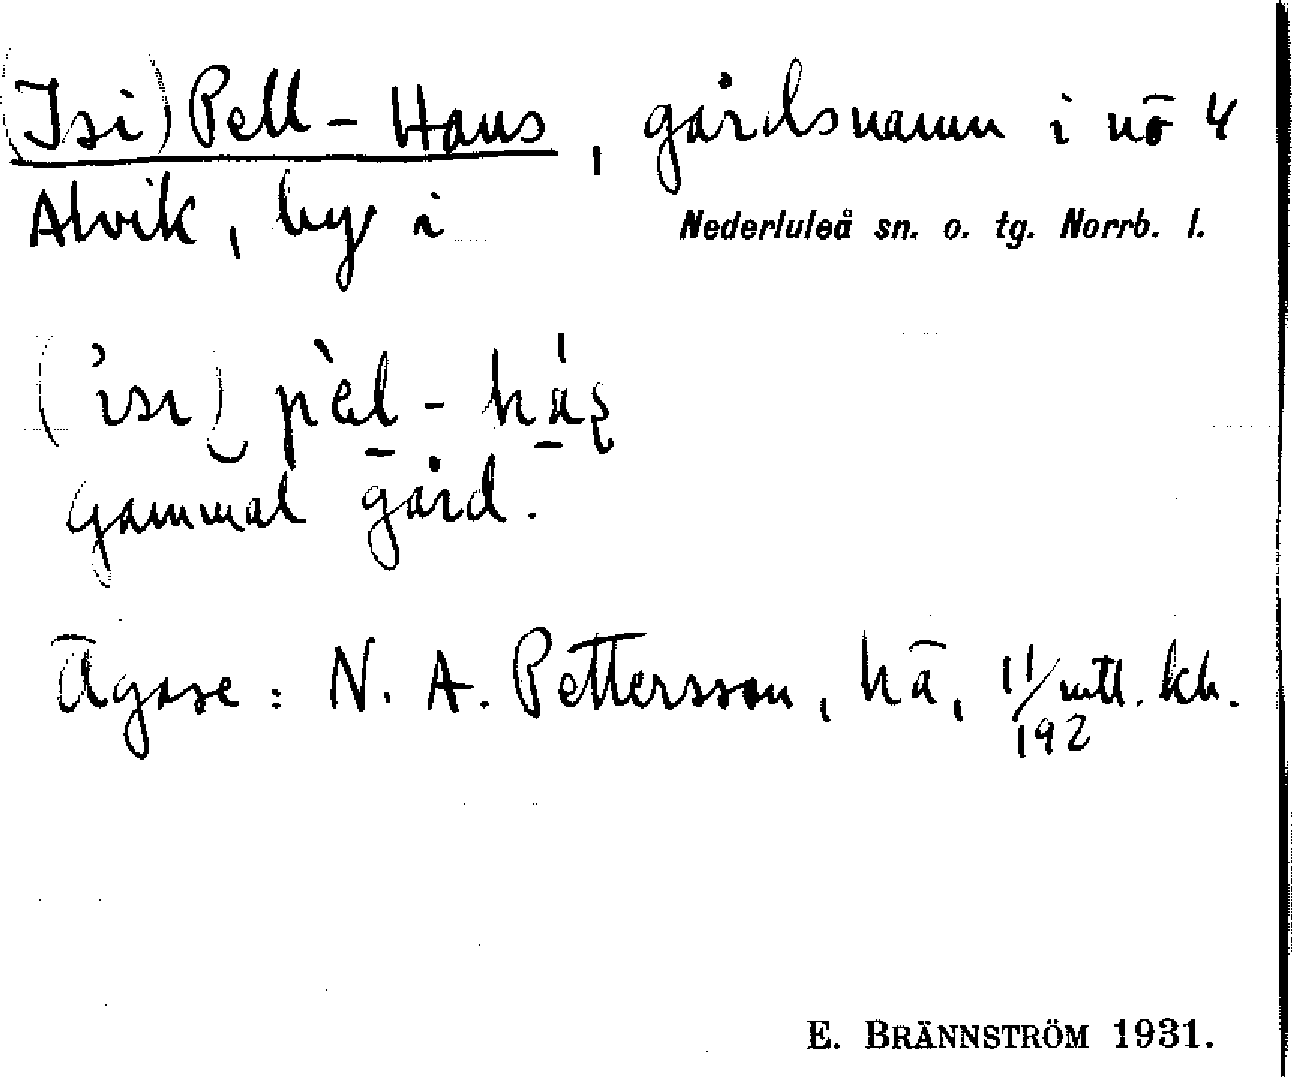 (Isi) Pell-Hans, gårdsnamn i nö 4
Alvik, by i Nederluleå sn. o. tg. Norrb. l.
gammal gård.
Ägare: N. A. Pettersson, hä, 11/192 mtl. kh.
E. BRÄNNSTRÖM 1931.